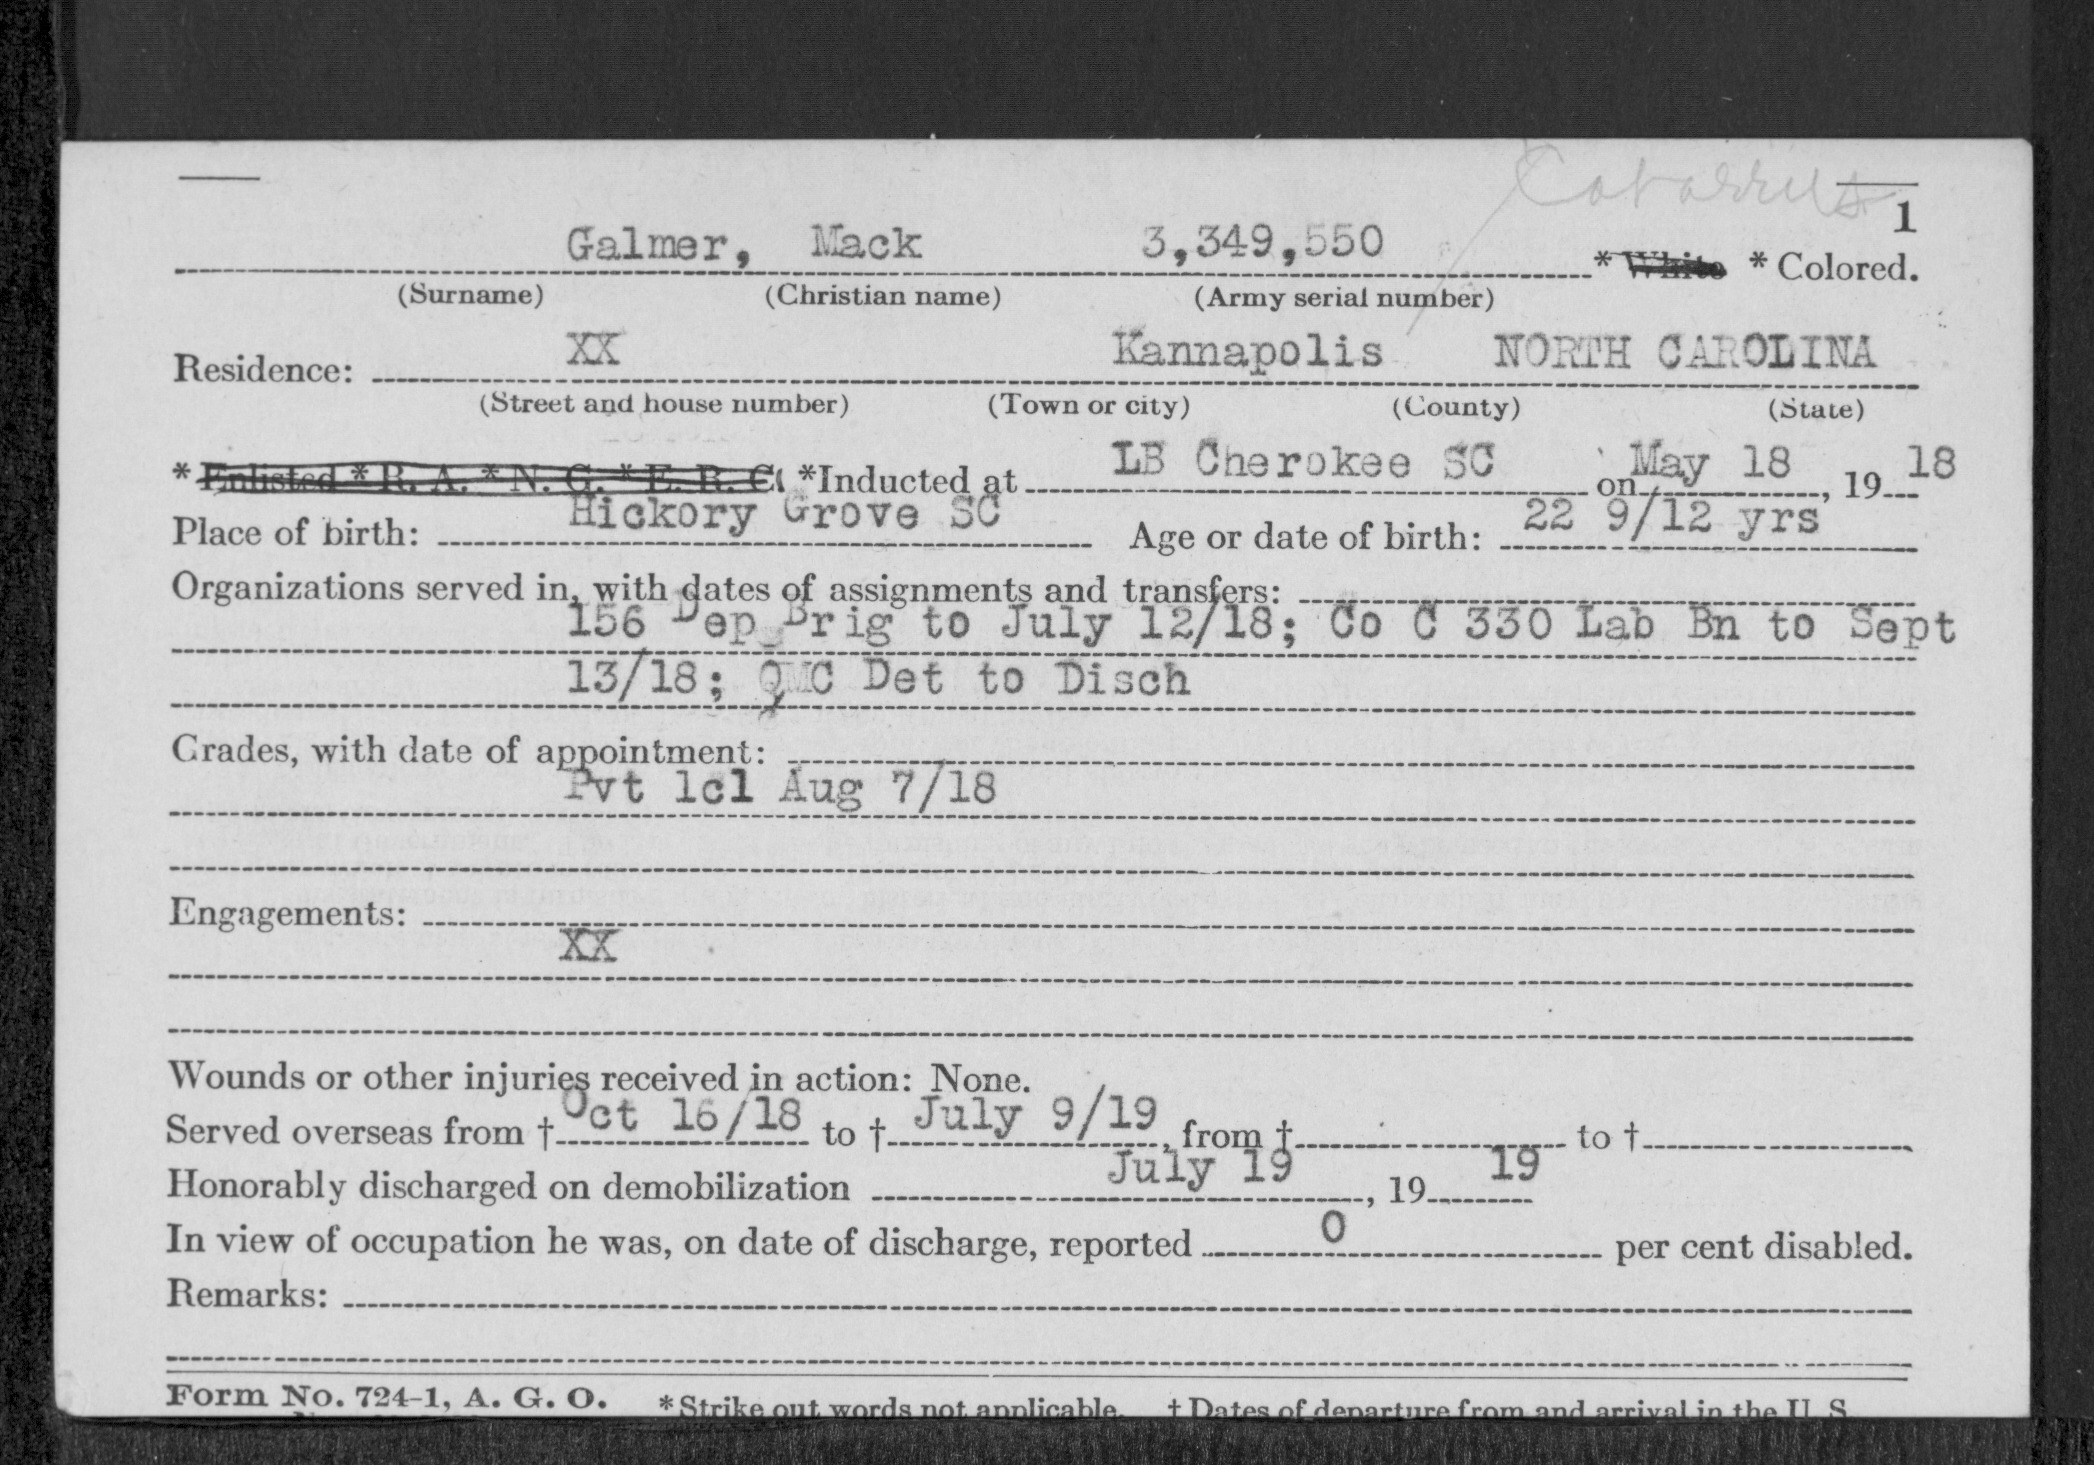 Cabarrus
1
Galmer, Mack 3,349,550 * White * Colored.
(Surname) (Christian name) (Army serial number)
Residence: XX Kannapolis NORTH CAROLINA
(Street and house number) (Town or city) (County) (State)
* Enlisted * R. A. * N. G. * E. R. C. *Inducted at LB Cherokee SC on May 18, 19 18
Place of birth: Hickory Grove SC Age or date of birth: 22 9/12 yrs
Organizations served in, with dates of assignments and transfers:
156 Dep Brig to July 12/18; Co C 330 Lab Bn to Sept
13/18; QMC Det to Disch
Grades, with date of appointment:
Pvt 1cl Aug 7/18
Engagements:
XX
Wounds or other injuries received in action: None.
Served overseas from † Oct 16/18 to † July 9/19, from † to †
Honorably discharged on demobilization July 19, 19 19
In view of occupation he was, on date of discharge, reported 0 per cent disabled.
Remarks:
Form No. 724-1, A. G. O. *Strike out words not applicable. † Dates of departure from and arrival in the U. S.